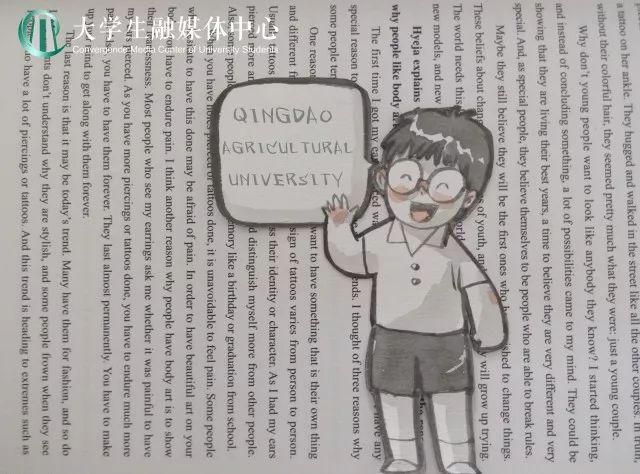 大学生融媒体中心
Convergence Media Center of University Students
QINGDAO
AGRICULTURAL
UNIVERSITY
a tattoo on her ankle. They hugged and walked in the street like all the other couples. In
without their colorful hair, they seemed pretty much what they were: just a young couple.
Why don't young people want to look like anybody they know? I started thinking,
and instead of concluding something, a lot of possibilities came to my mind. They could be
showing that they are living their best years, a time to believe they are very different and very
special. And, as special people, they believe themselves to be people who are able to break rules.
Maybe they still believe they will be the first ones who to change things.
These beliefs about of youth, will grow up trying.
The world needs this
new models, and new
Hyeja explains
why people like body
The first time I got my I thought of three reasons why
some people
special reason to have any
One reason want to have something that is their own thing
and different of tattoos varies from person to person.
tattoos their identity or character. As I had my ears
more distinguish myself more from other people.
Also some people memory like a birthday or graduation from school.
you have more pierced or tattoos done, it is unavoidable to feel pain. Some people
to have this done may be afraid of pain. In order to have beautiful art on your
have to endure pain. I think another reason why people have body art is to show
their fearlessness. Most people who see my earrings ask me whether it was painful to have
my ears pierced. As you have more piercings or tattoos done, you have to endure much more
you have to have them forever. They last almost permanently. You have to make
up your mind to get along with them forever.
The last reason is that it may be today's trend. Many have them for fashion, and so do
don't understand why they are stylish, and some people frown when they see
who do have a lot of piercings or tattoos. And this trend is heading to extremes such as